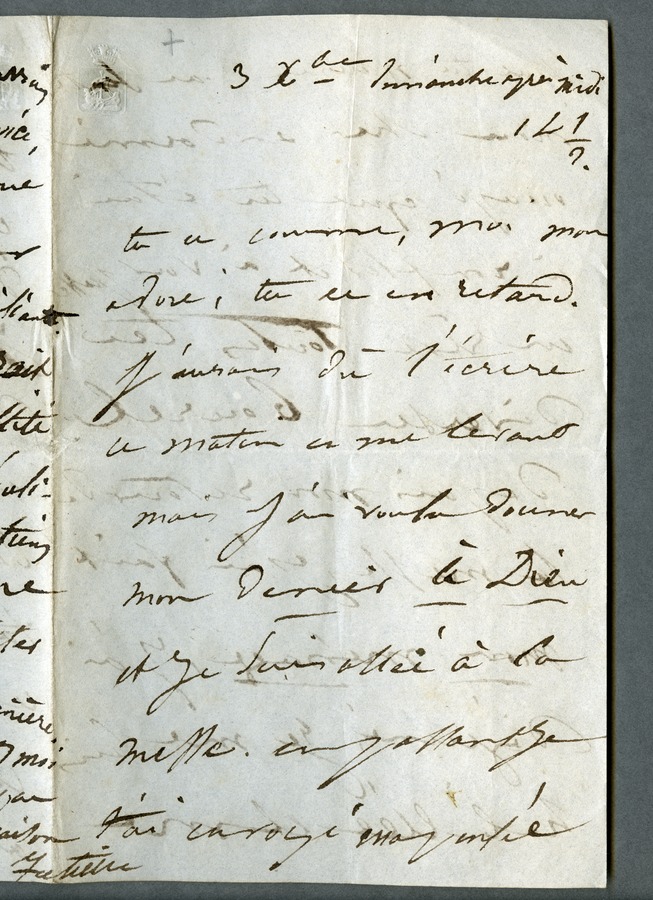 3 Xbre Dimanche après midi
1 h 1/2.
tu es comme, moi mon
adoré ; tu es en retard.
J'aurais dû t'écrire
ce matin en me levant
mais j'ai voulu donner
mon denier à Dieu
et je suis allée à la
messe. en passant je
t'ai envoyé ma pensée